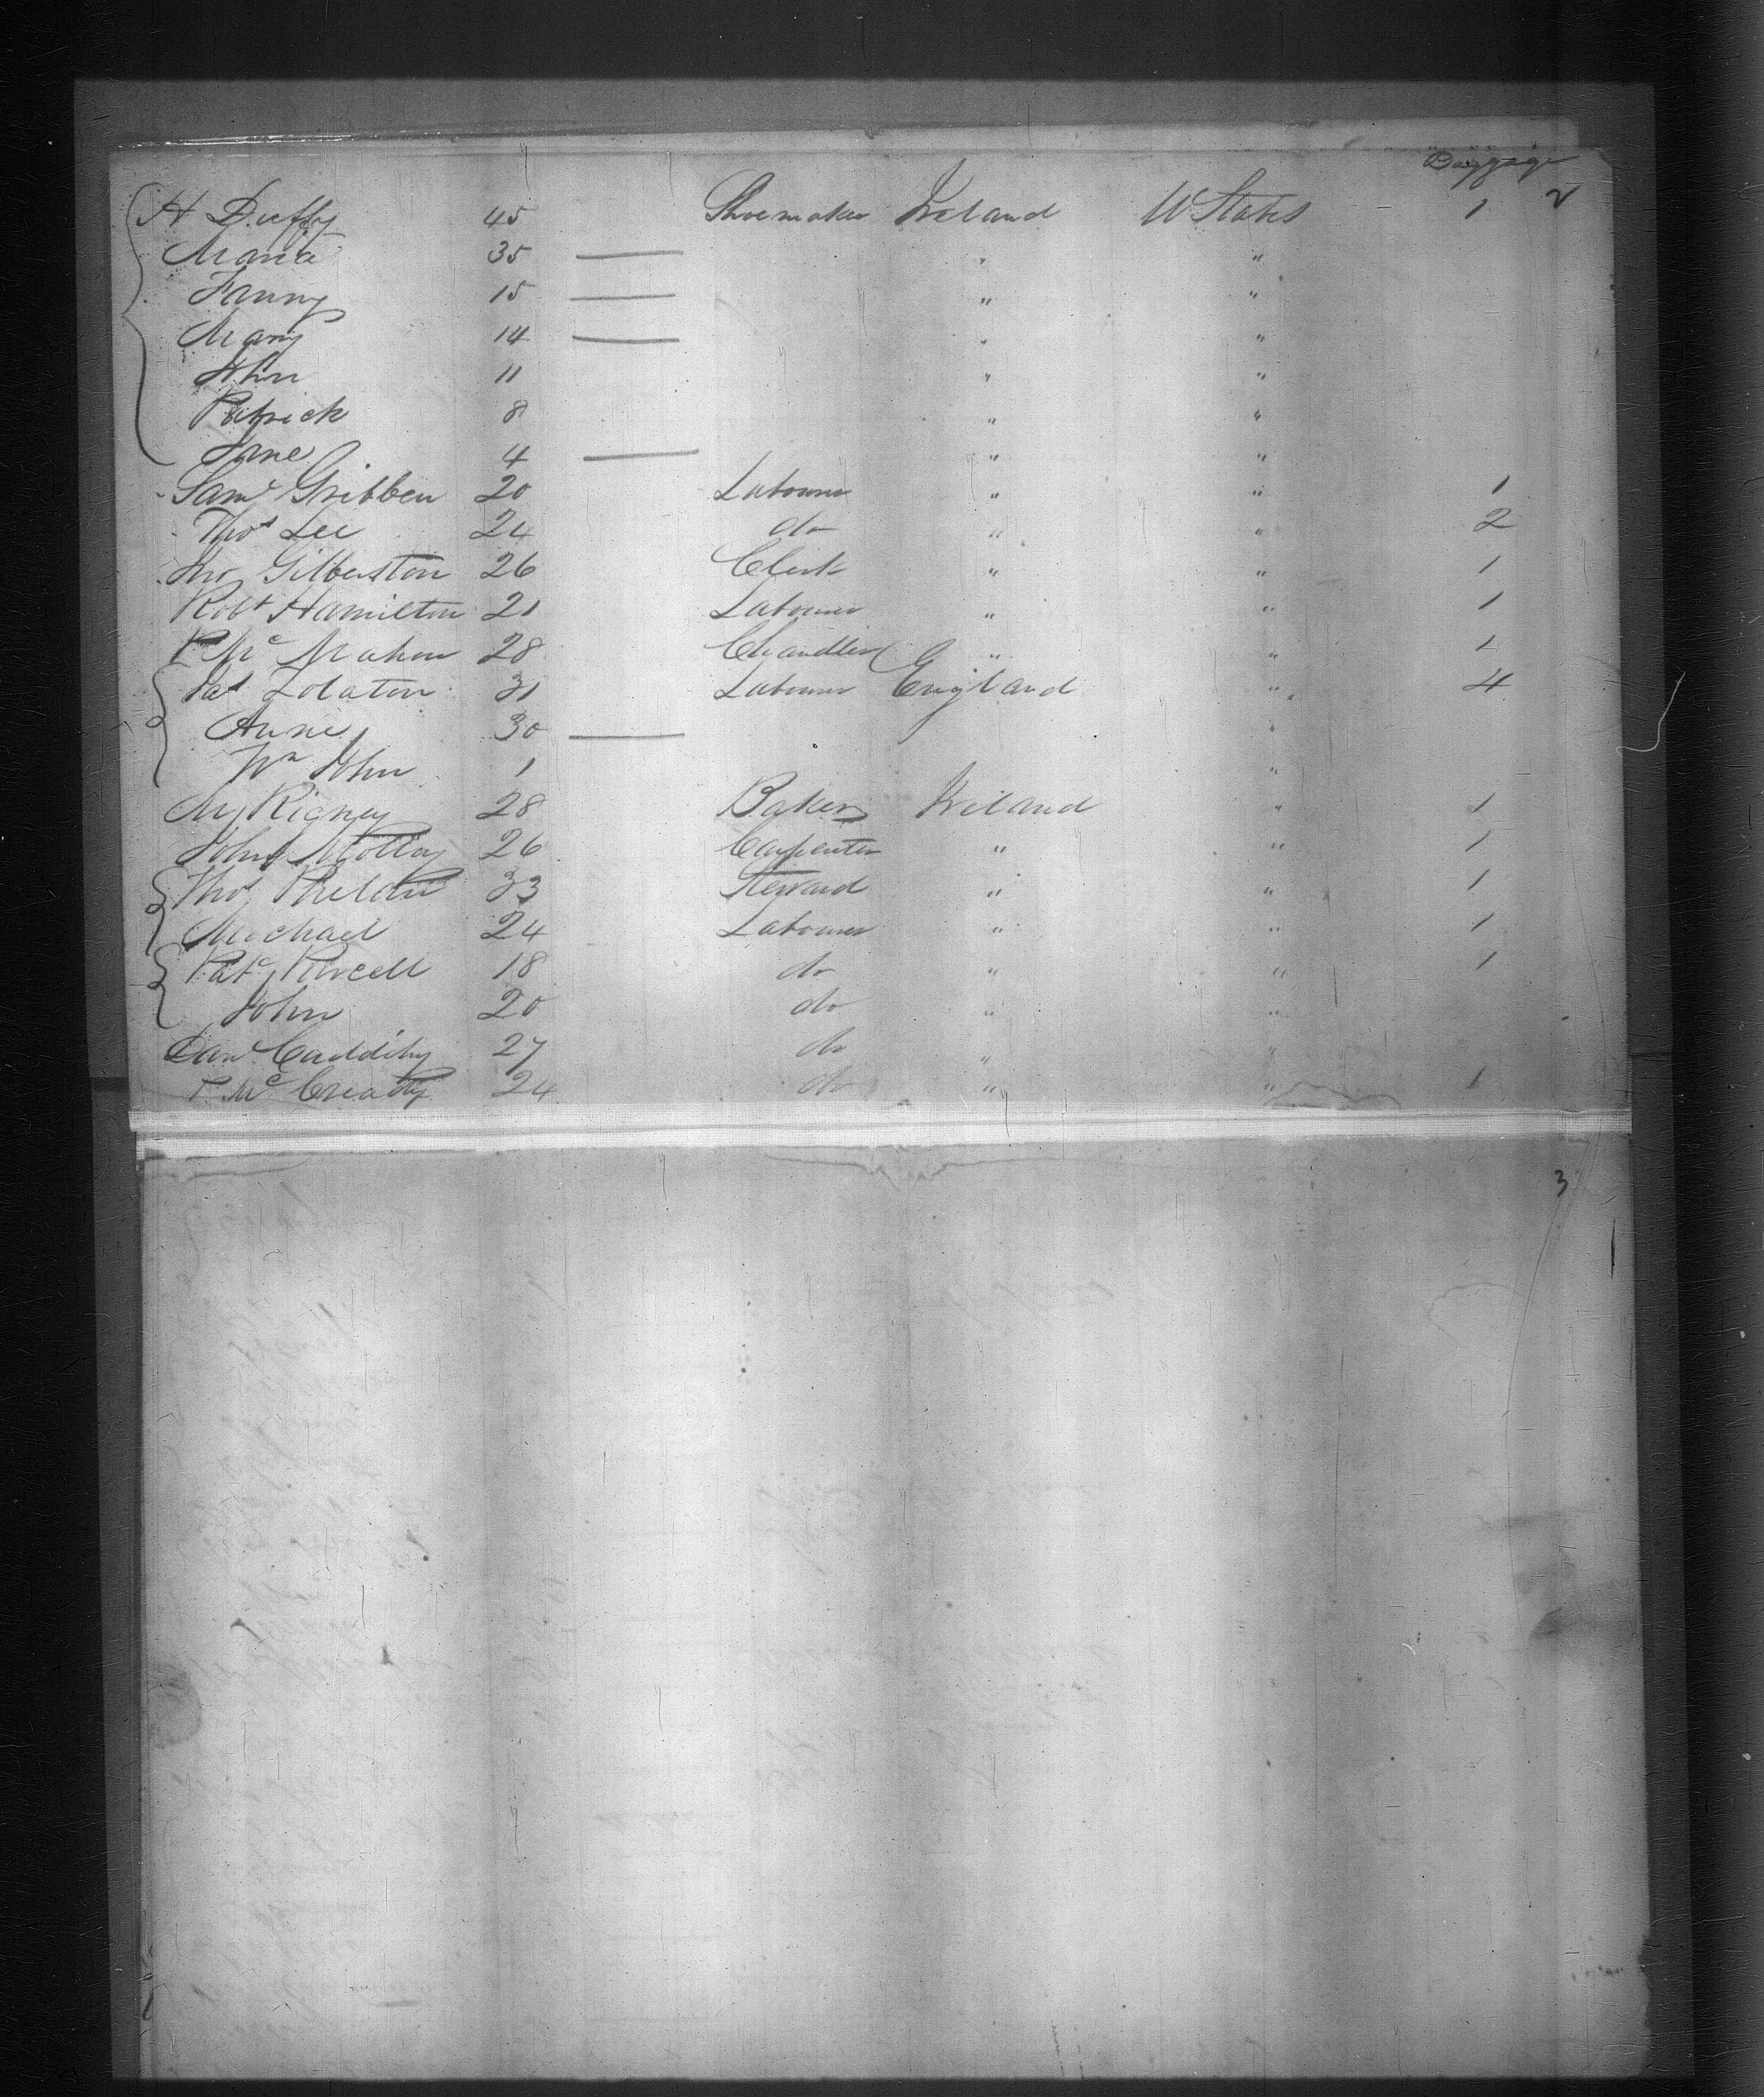 Baggage
H Duffy 45 Shoemaker Ireland U States 1 2
Maria 35 — " "
Fanny 15 — " "
Mary 14 — " "
John 11 " "
Patrick 8 " "
Jane 4 — " "
Saml Gribben 20 Labourer " " 1
Thos Lee 24 do " " 2
Jno Gilberston 26 Clerk " " 1
Robt Hamilton 21 Labourer " " 1
P Mc Mahon 28 Chandler " " 1
Pat 31 Labourer England " 4
Anne 30 — "
Wm John 1 "
M Rigney 28 Baker Ireland " 1
John Molloy 26 Carpenter " " 1
Thos Phelan 33 Steward " " 1
Michael 24 Labourer " " 1
Patk Purcell 18 do " " 1
John 20 do " "
Danl Cuddihy 27 do " "
P Mc Cready 24 do " " 1
3